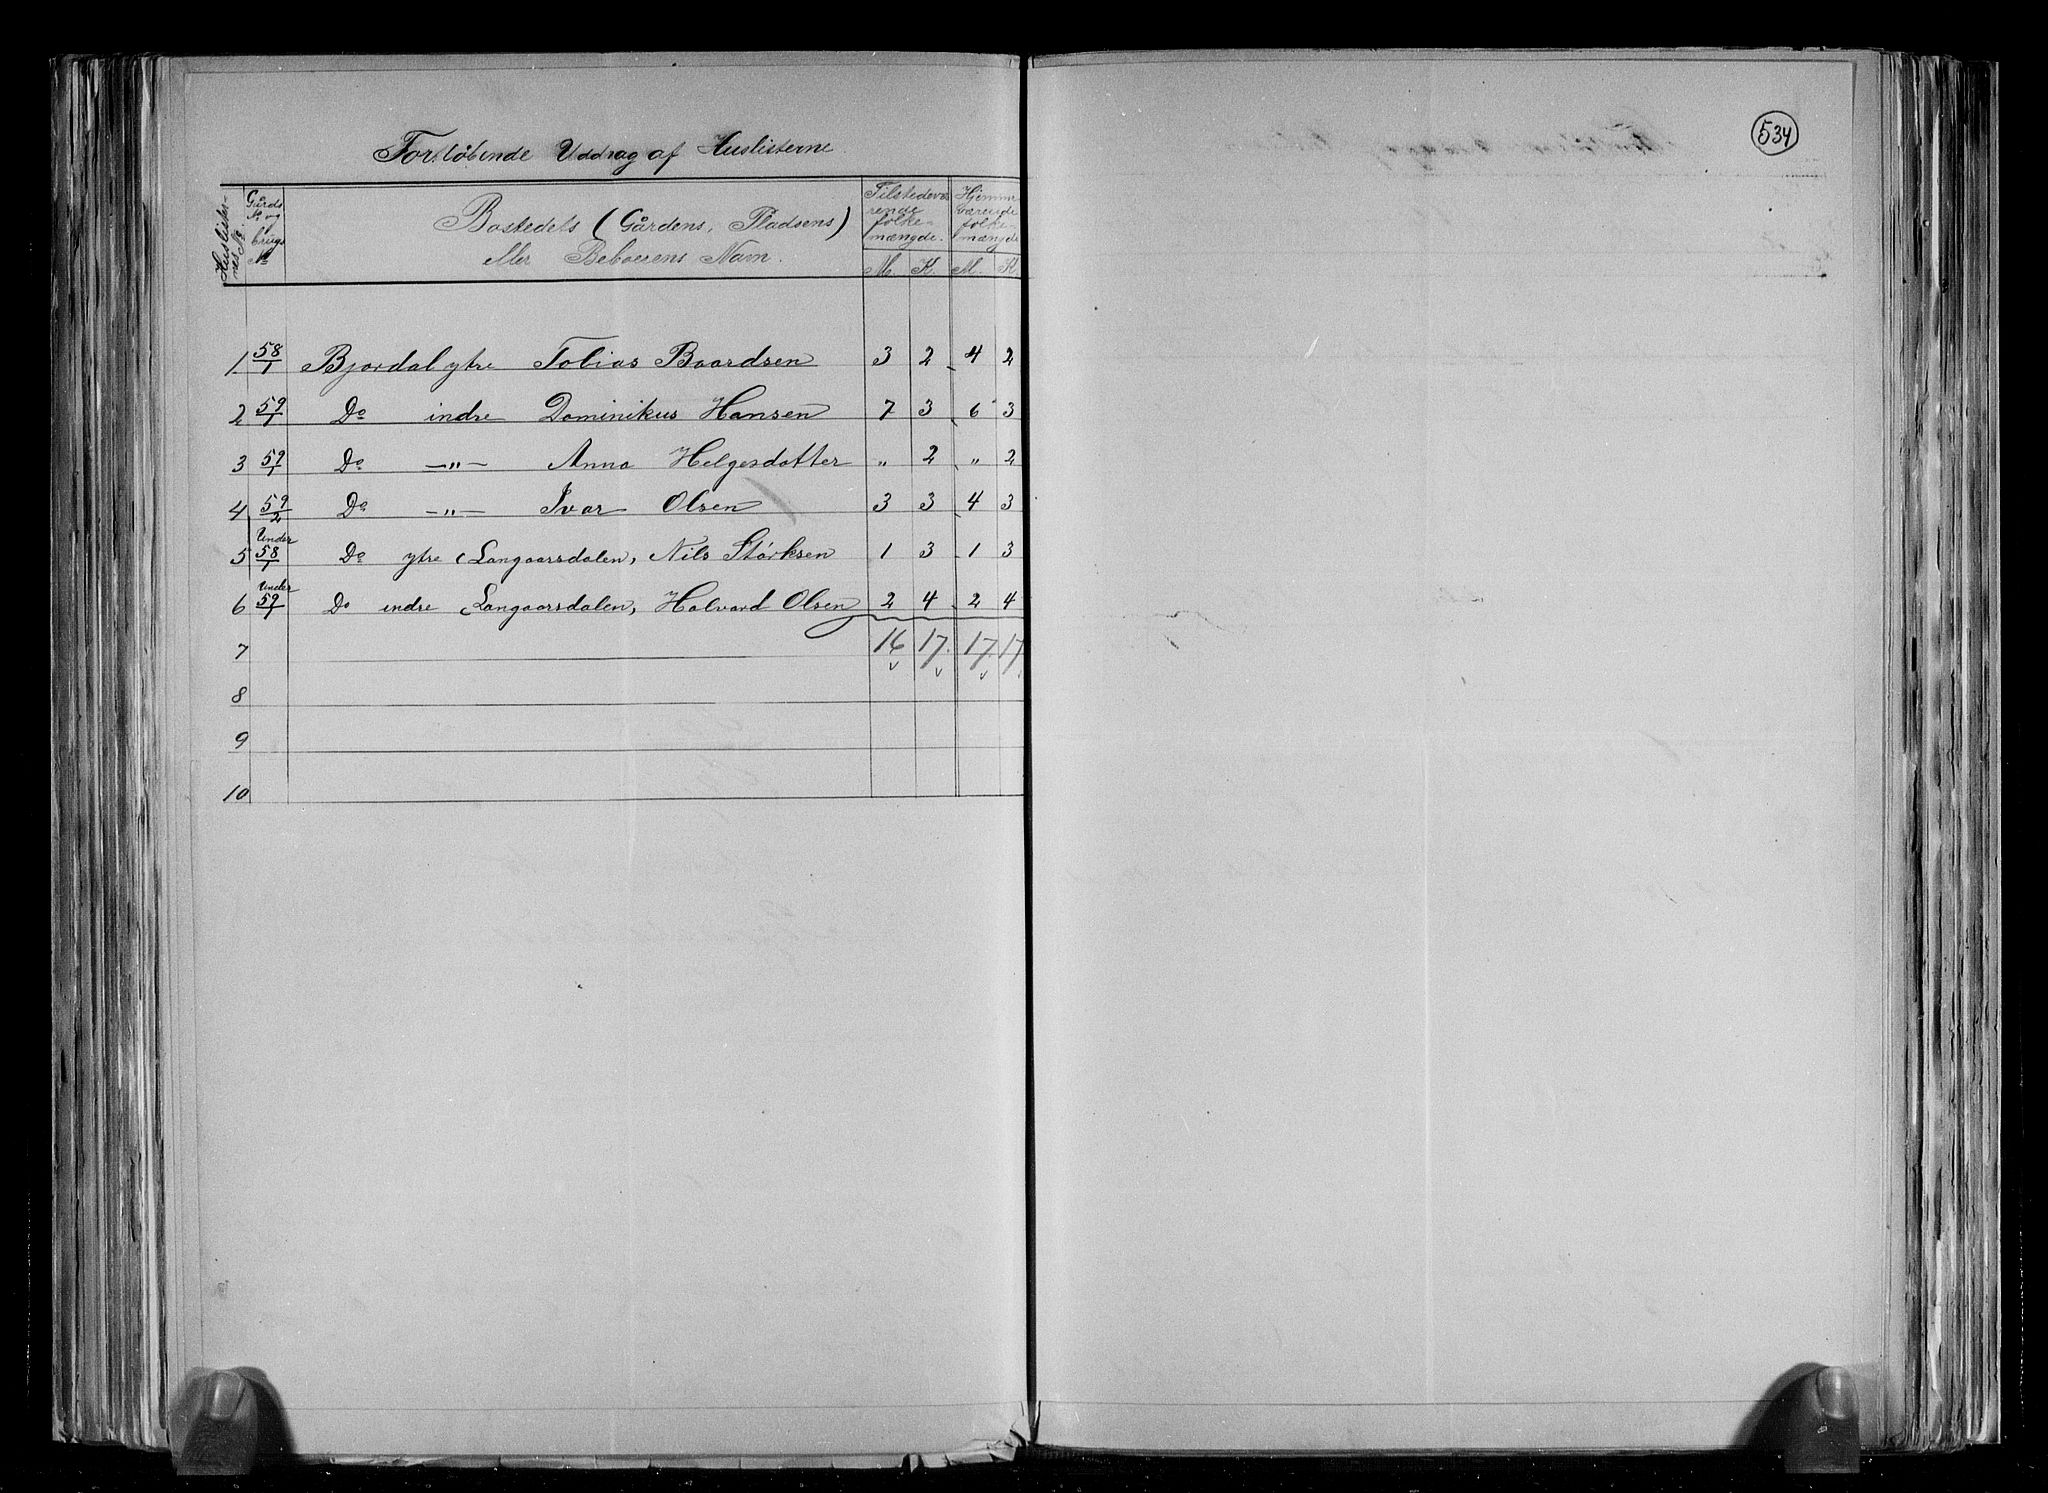 Fortløbende Uddrag af Huslisterne
Huslister-
nes №
Gårds
№ og
brugs
№
Bostedets (Gårdens, Pladsens)
eller Beboerens Navn.
Tilstedevæ
rende
folke-
mængde.
Hjemme
hørende
folke-
mængde
M. K. M. K
1 58/1 Bjordal ytre Tobias Baardsen 3 2 4 2
2 59/1 Do indre Dominikus Hansen 7 3 6 3
3 59/1 Do —"— Anna Helgesdatter " 2 " 2
4 59/2 Do —"— Ivar Olsen 3 3 4 3
5 Under 58/1 Do ytre (Langaarsdalen, Nils Størksen 1 3 1 3
6 Under 59/1 Do indre (Langaarsdalen, Halvard Olsen 2 4 2 4
7 16 17. 17. 17
8
9
10
534